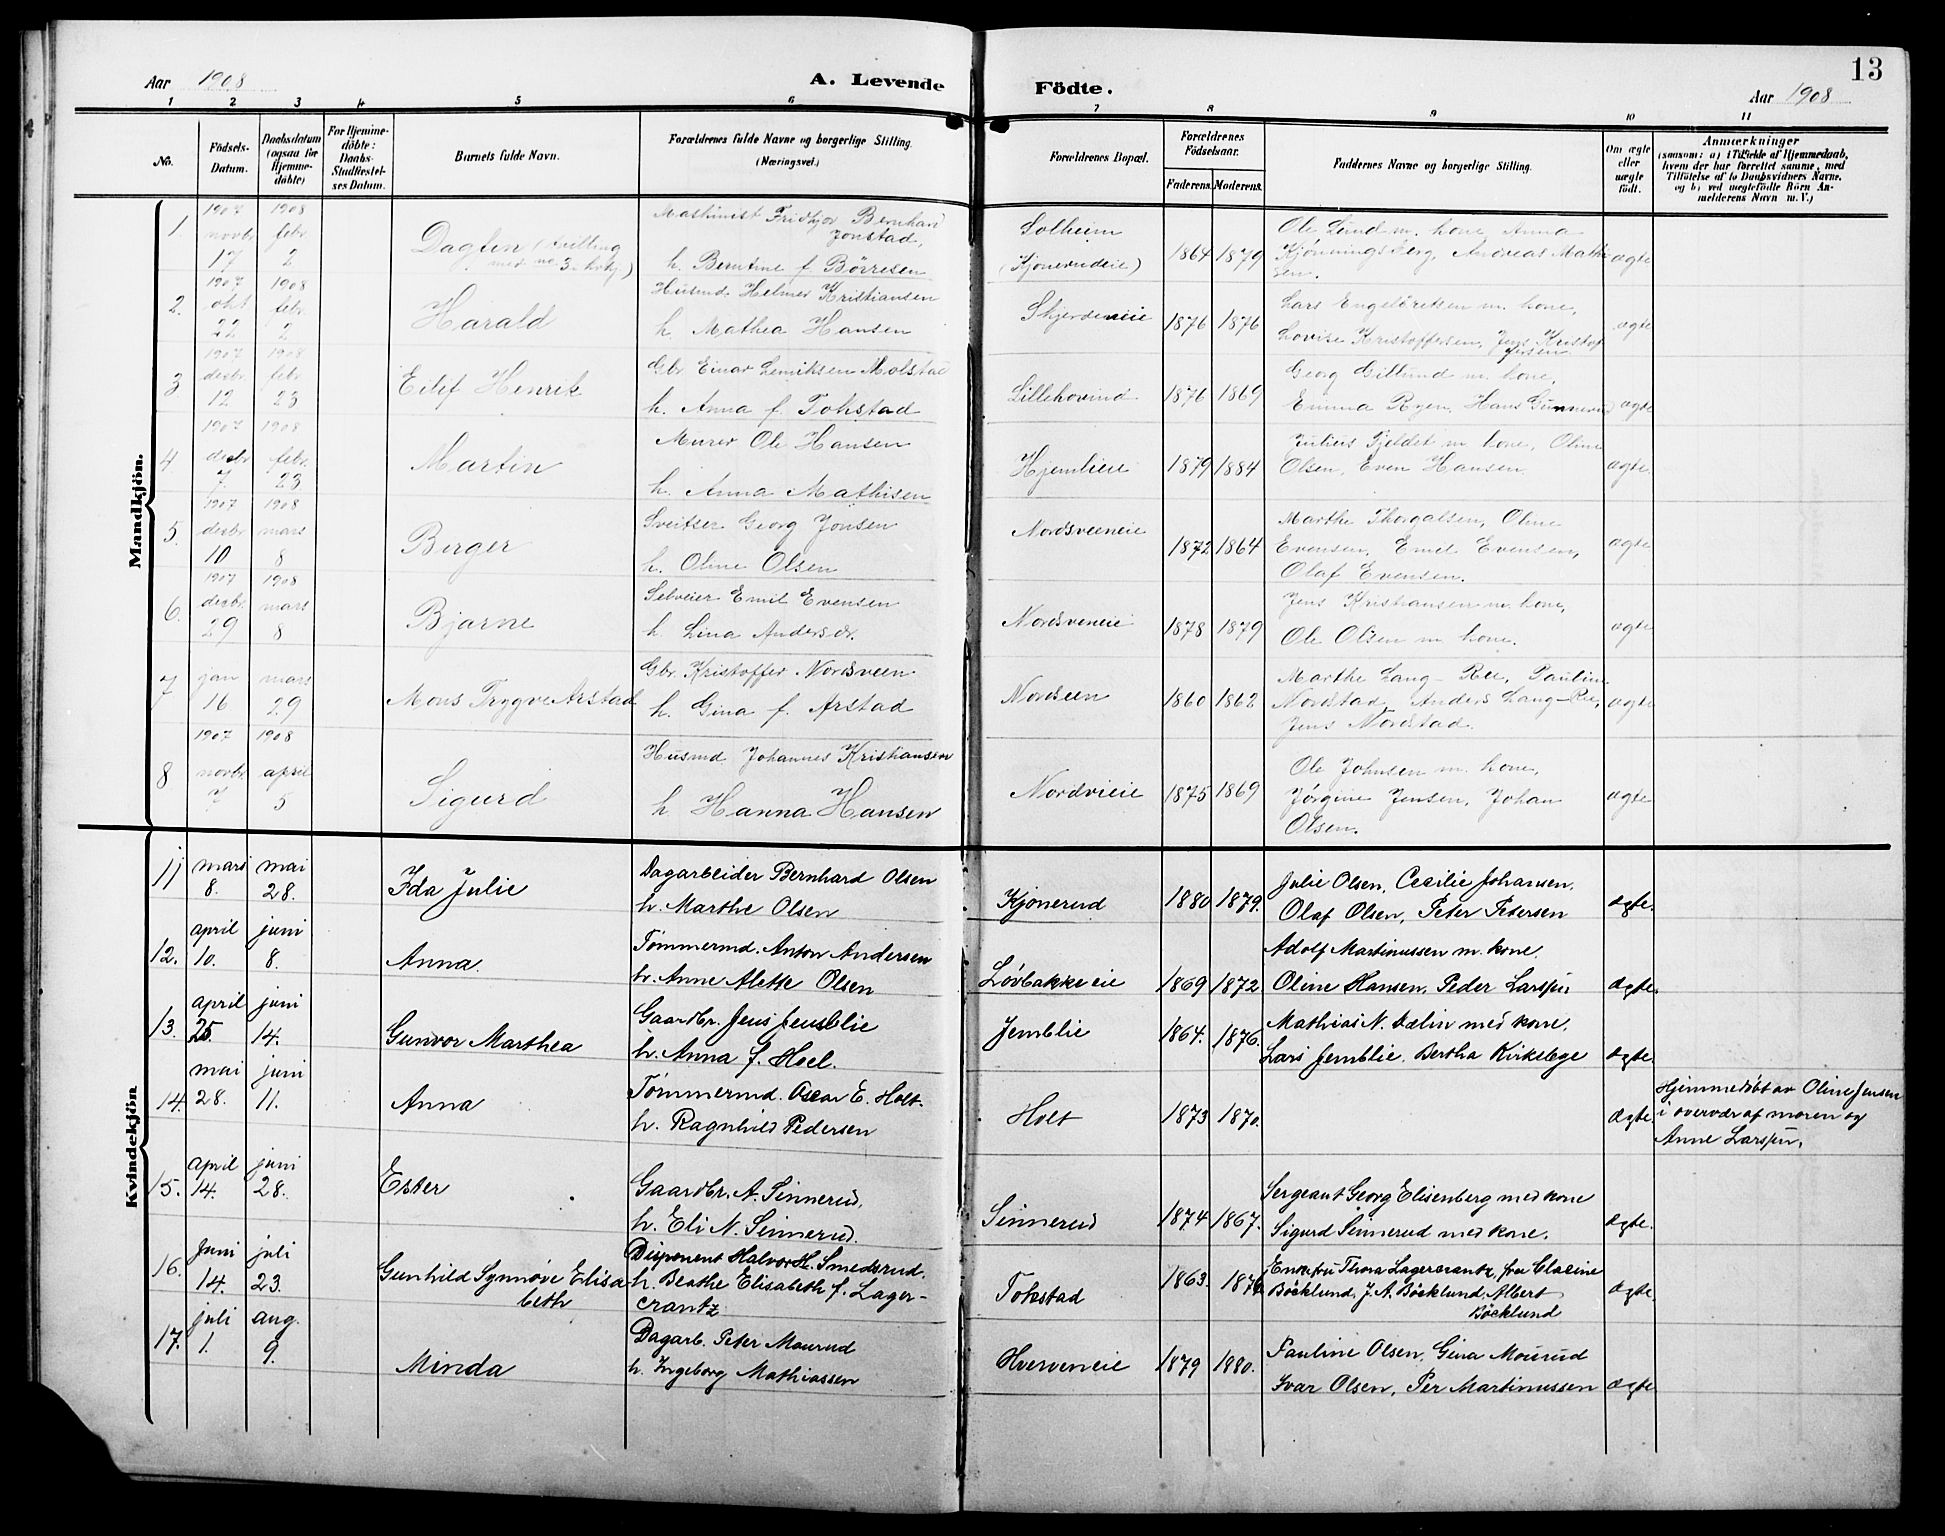 Aar 1908
A. Levende Födte.
Aar 1908
13
1 2 3 4 5 6 7 8 9 10 11
No.
Födsels-
Datum.
Daabsdatum
(ogsaa for
Hjemme-
döbte)
For Hjemme-
döbte:
Daabs-
Stadfæstel-
ses Datum.
Barnets fulde Navn.
Forældrenes fulde Navne og borgerlige Stilling.
(Næringsvei.)
Forældrenes Bopæl.
Forældrenes
Födselsaar.
Faderens. Moderens.
Faddernes Navne og borgerlige Stilling.
Om ægte
eller
uægte
födt.
Anmærkninger
(saasom: a) i Tilfælde af Hjemmedaab,
hvem der har forrettet samme, med
Tilföielse af to Daabsvidners Navne,
og b) ved uægtefödte Börn An-
melderens Navn m. V.)
Mandkjön.
1
1907 novbr 17
1908 febr 2
Dagfin (tvilling
med no 3 kvkj.)
Maskinist Fridtjov Bernhard
Jonstad,
h. Berntine f. Börresen
Solheim
(Kjonerudeie)
1864 1879
Ole Lund m. kone, Anna
Kjönningsberg, Andreas Mathi
sen.
ægte
2.
1907 okt 22
1908 febr 2
Harald
Husmd. Helmer Kristiansen
h. Mathea Hansen
Skjerdeneie
1876 1876
Lars Engelöretsen m. kone,
Lovise Kristoffersen, Jens Kristof
fersen
ægte
3
1907 desbr 12
1908 febr 23
Eilif Henrik
Gbr. Einar Henriksen Molstad
h. Anna f. Tokstad
Lillehovind
1876 1869
Georg Gillund m. kone,
Emma Ryen, Hans Gunnerud
ægte
4
1907 desbr 7
1908 febr. 23
Martin
Murer Ole Hansen
h. Anna Mathisen
Hjemlieie
1879 1884
Julius Fjeldet m. kone, Oline
Olsen, Even Hansen.
ægte
5.
1907 desbr 10
1908 mars 8
Birger
Sveitser Georg Jonsen
h. Oline Olsen
Nordsveeneie
1872 1864
Marthe Thorgalsen, Oline
Evensen, Emil Evensen,
Olaf Evensen.
ægte
6.
1907 desbr. 29
1908 mars 8
Bjarne
Selveier Emil Evensen
h. Lina Andersdr.
Nordsveneie
1878 1879
Jens Kristiansen m. kone,
Ole Olsen m. kone.
ægte
7
jan 16
mars 29
Mons Trygve Arstad
Gbr. Kristoffer Nordsveen
h. Gina f. Arstad
Nordseen
1860 1862
Marthe Lang-Ree, Pauline
Nordstad, Anders Lang-Ree,
Jens Nordstad.
ægte
8
1907 novbr 7
1908 april 5
Sigurd
Husmd. Johannes Kristiansen
h Hanna Hansen
Nordvieie
1875 1869
Ole Johnsen m. kone,
Jörgine Jensen, Johan
Olsen.
ægte
Kvindekjön
11
mars 8.
mai 28.
Ida Julie
Dagarbeider Bernhard Olsen
h. Marthe Olsen
Kjonerud
1880 1879.
Julie Olsen, Cecilie Johansen.
Olaf Olsen, Peter Petersen
ægte.
12.
april 10.
juni 8.
Anna.
Tømmermd. Anton Andersen
h. Anne Alette Olsen
Løvbakkeeie
1869 1872
Adolf Martinussen m. kone.
Oline Hansen, Peder Larsen
ægte.
13.
april 25.
juni 14.
Gunvor Marthea
Gaardbr. Jens Jemblie
h. Anna f. Hoel.
Jemblie
1864. 1876.
Mathias N. Dælin med kone.
Lars Jemblie. Bertha Kirkelege
ægte.
14.
mai 28.
juni 11.
Anna
Tømmermd. Oscar E. Holt.
h. Ragnhild Pedersen
Holt
1873 1870.
ægte.
Hjemmedöbt av Oline Jensen
i overvær af moren og
Anne Larsen.
15.
april 14.
juni 28.
Ester
Gaardbr. A. Sinnerud,
h. Eli N. Sinnerud.
Sinnerud
1874 1867.
Sergeant Georg Elisenberg med kone
Sigurd Sinnerud med kone.
ægte.
16.
Juni 14.
juli 23.
Gunhild Synnøve Elisa
beth
Disponent Halvor H. Smedsrud.
h. Beathe Elisabeth f. Lager-
crantz.
Tokstad
1863. 1876
Enkefru Thora Lagercrantz, fru Clacine
Böcklund, J. A. Böcklund, Albert
Böcklund
ægte.
17.
juli 1.
aug. 9.
Minda
Dagarb. Peter Mourud
h. Ingeborg Mathiassen
Hverveneie
1879 1880.
Pauline Olsen, Gina Mourud
Ivar Olsen, Per Martinussen
ægte.